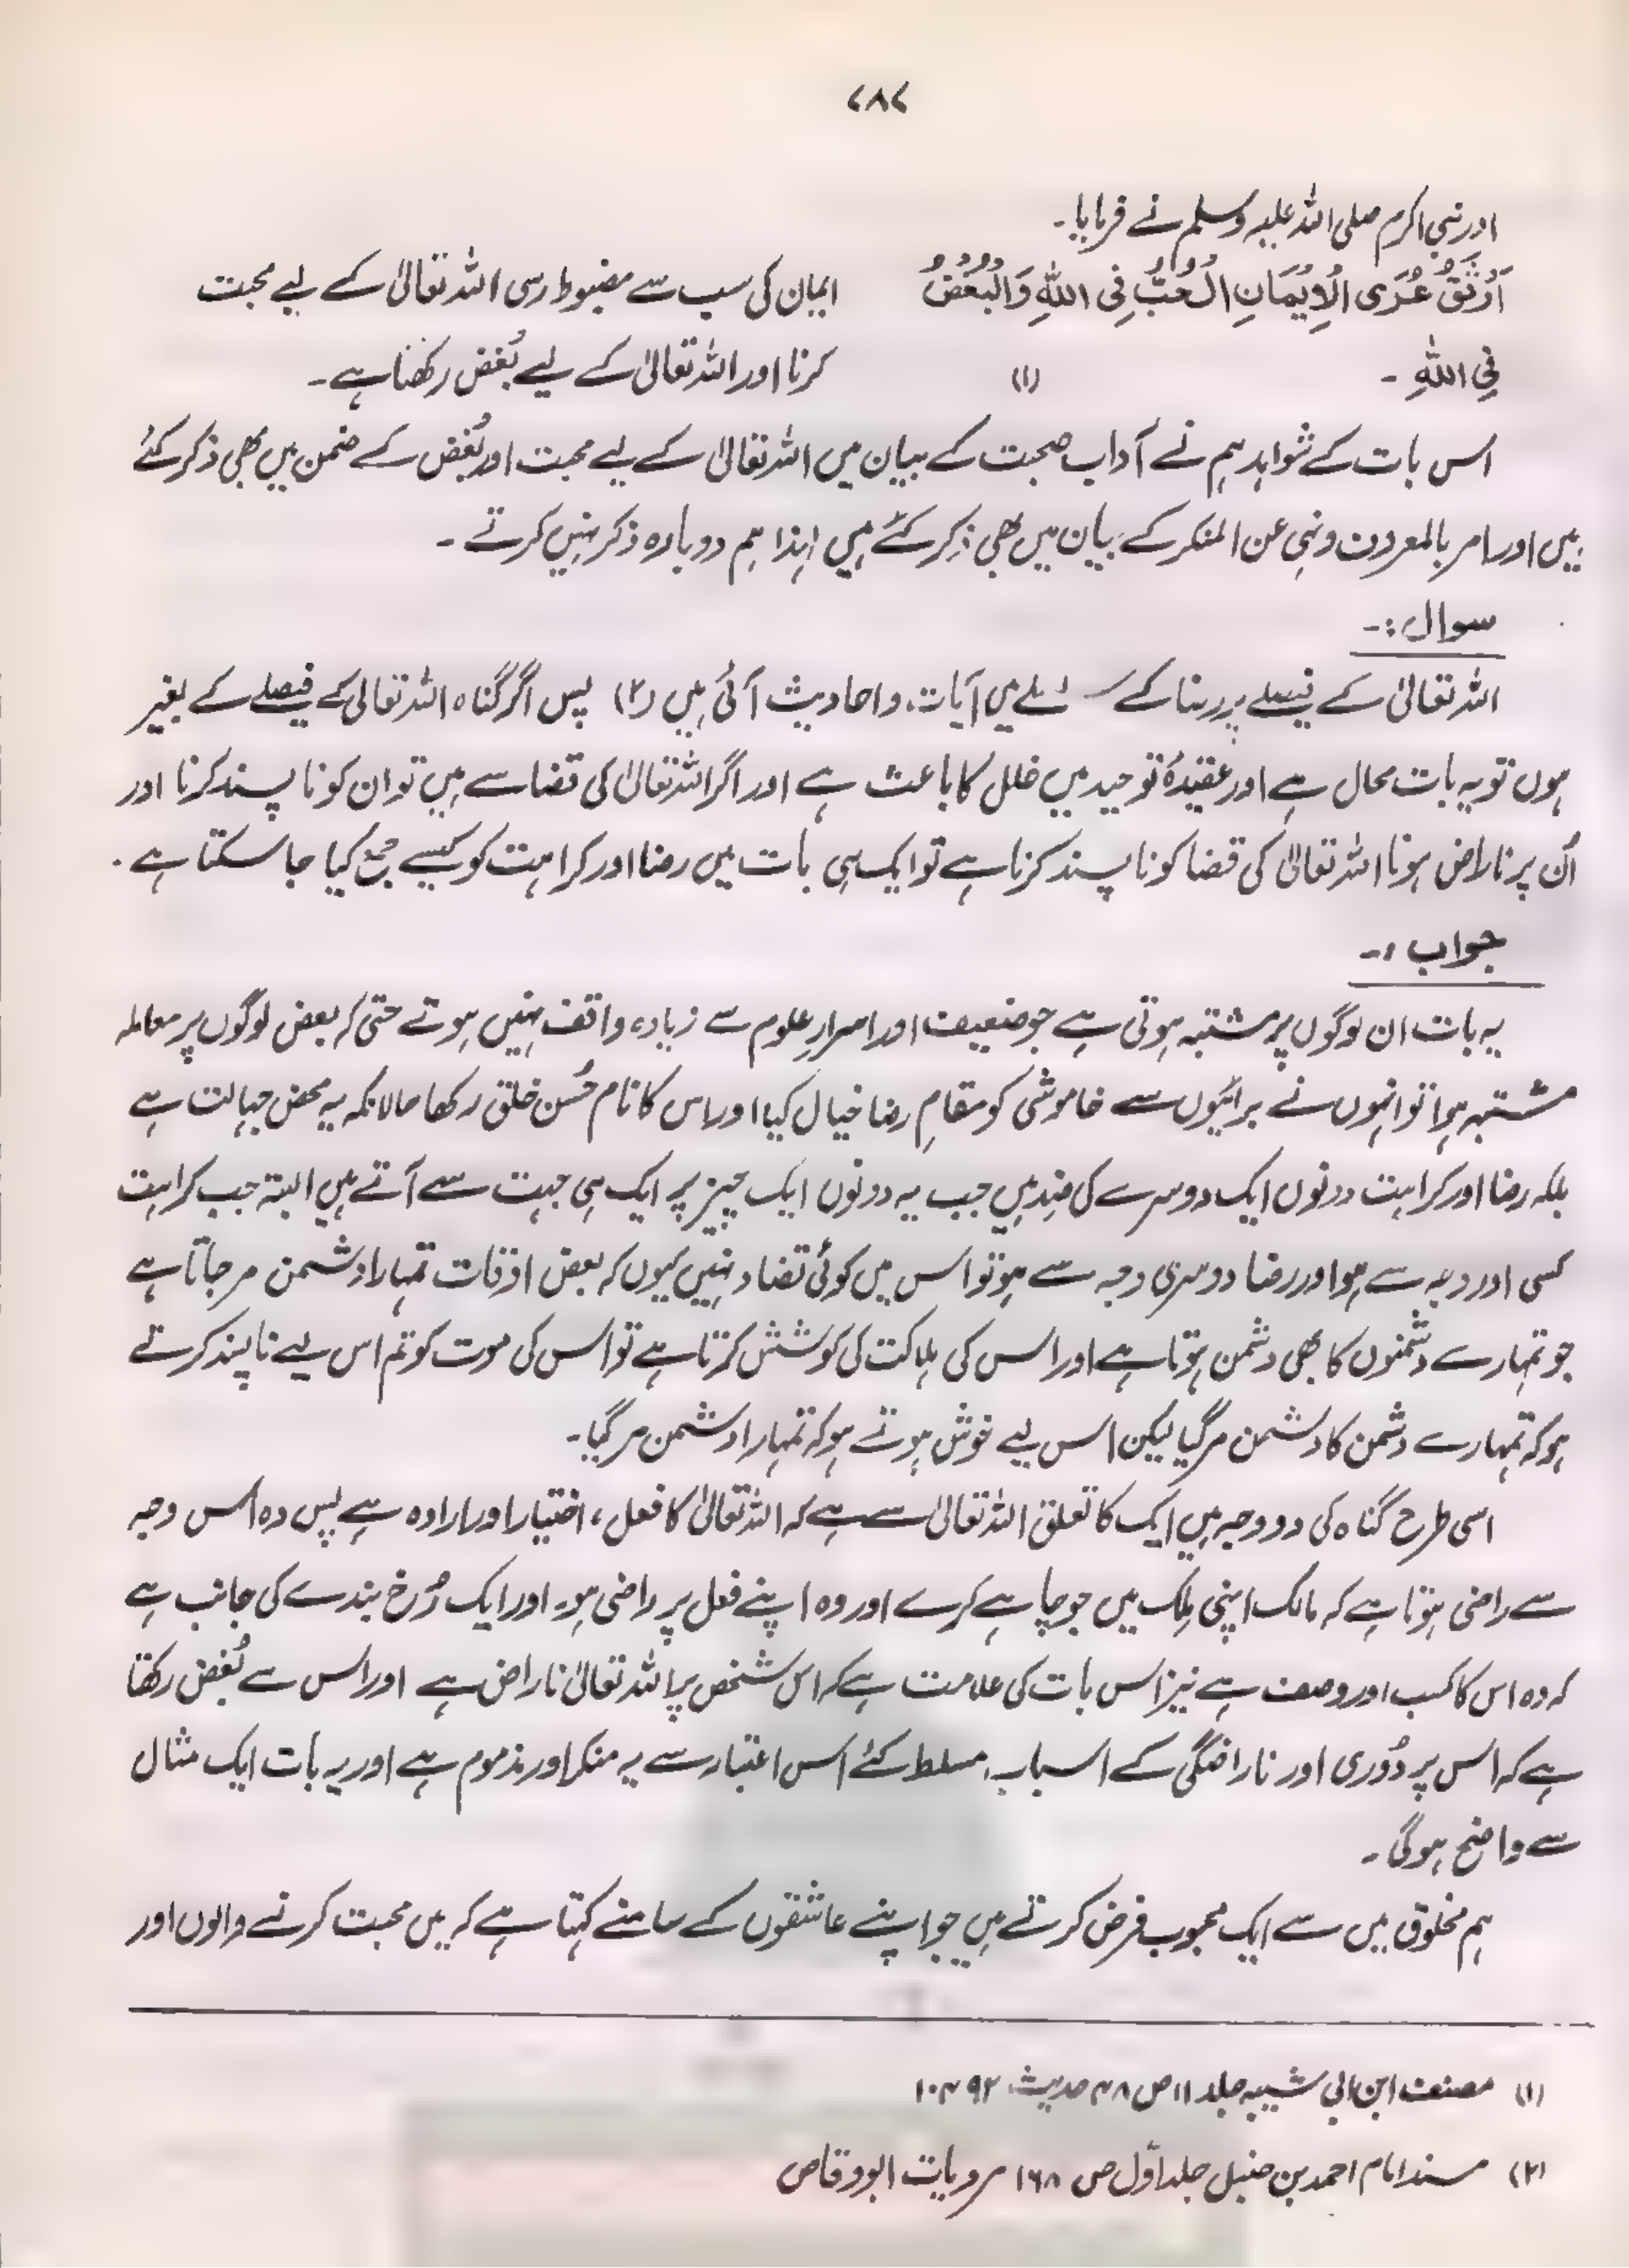 ۷۸۷
اور نبی اکرم صلی اللہ علیہ وسلم نے فرمایا۔
اَوْثَقُ عُرَی الْاِیْمَانِ الْحُبُّ فِی اللهِ وَالْبُغْضُ ایمان کی سب سے مضبوط رسی اللہ تعالیٰ کے لیے محبت
فِی اللهِ ۔ (۱) کرنا اور اللہ تعالیٰ کے لیے بُغض رکھنا ہے۔
اس بات کے شواہد ہم نے آداب صحبت کے بیان میں اللہ تعالیٰ کے لیے محبت اور بُغض کے ضمن میں بھی ذکر کئے
ہیں اور امر بالمعروف ونہی عن المنکر کے بیان میں بھی ذکر کئے ہیں لہذا ہم دوبارہ ذکر نہیں کرتے ۔
سوال :۔
اللہ تعالیٰ کے فیصلے پر رضا کے سلسلے میں آیات واحادیث آئی ہیں (۲) پس اگر گناہ اللہ تعالیٰ کے فیصلے کے بغیر
ہوں تو یہ بات محال ہے اور عقیدۂ توحید میں خلل کا باعث ہے اور اگر اللہ تعالیٰ کی قضا سے ہیں تو ان کو نا پسند کرنا اور
اُن پر ناراض ہونا اللہ تعالیٰ کی قضا کو نا پسند کرنا ہے تو ایک ہی بات میں رضا اور کراہت کو کیسے جمع کیا جا سکتا ہے ۔
جواب :۔
یہ بات ان لوگوں پر مشتبہ ہوتی ہے جو ضعیف اور اسرارِ علوم سے زیادہ واقف نہیں ہوتے حتیٰ کہ بعض لوگوں پر معاملہ
مشتبہ ہوا تو انہوں نے برائیوں سے خاموشی کو مقامِ رضا خیال کیا اور اس کا نام حُسن خلق رکھا حالانکہ یہ محض جہالت ہے
بلکہ رضا اور کراہت دونوں ایک دوسرے کی ضد ہیں جب یہ دونوں ایک چیز پر ایک ہی جہت سے آتے ہیں البتہ جب کراہت
کسی اور وجہ سے ہو اور رضا دوسری وجہ سے ہو تو اس میں کوئی تضاد نہیں کیوں کہ بعض اوقات تمہارا دشمن مر جاتا ہے
جو تمہارے دشمنوں کا بھی دشمن ہوتا ہے اور اس کی ہلاکت کی کوشش کرتا ہے تو اس کی موت کو تم اس لیے نا پسند کرتے
ہو کہ تمہارے دشمن کا دشمن مر گیا لیکن اس لیے خوش ہوتے ہو کہ تمہارا دشمن مر گیا۔
اسی طرح گناہ کی دو وجہ ہیں ایک کا تعلق اللہ تعالیٰ سے ہے کہ اللہ تعالیٰ کا فعل، اختیار اور ارادہ ہے پس وہ اس وجہ
سے راضی ہوتا ہے کہ مالک اپنی مِلک میں جو چاہے کرے اور وہ اپنے فعل پر راضی ہو۔ اور ایک رُخ بندے کی جانب ہے
کہ وہ اس کا کسب اور وصف ہے نیز اس بات کی علامت ہے کہ اس شخص پر اللہ تعالیٰ ناراض ہے اور اس سے بُغض رکھتا
ہے کہ اس پر دُوری اور ناراضگی کے اسباب مسلط کئے اس اعتبار سے یہ منکر اور مذموم ہے اور یہ بات ایک مثال
سے واضح ہوگی ۔
ہم مخلوق میں سے ایک محبوب فرض کرتے ہیں جو اپنے عاشقوں کے سامنے کہتا ہے کہ میں محبت کرنے والوں اور
(۱) مصنف ابن ابی شیبہ جلد ۱۱ ص ۴۸ حدیث ۱۰۴۹۲
(۲) مسند امام احمد بن حنبل جلد اوّل ص ۱۶۸ مرویات ابو وقاص